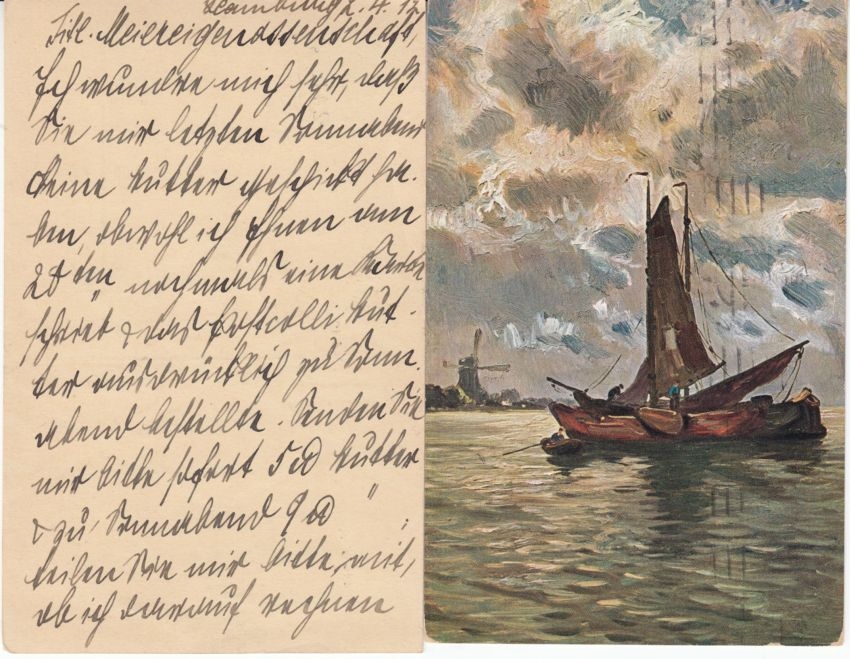 Hamburg 2. 4. 12
Titl. Meiereigenossenschaft,
Ich wundre mich sehr, daß
Sie mir letzten Sonnabend
keine Butter geschickt ha-
ben, obwohl ich Ihnen am
28ten nochmals eine Karte
schrieb & das Postcolli But-
ter ausdrücklich zu Sonn-
abend bestellte. Senden Sie
mir bitte sofort 5 ℔ Butter
& zu Sonnabend 9 ℔ " ;
teilen Sie mir bitte mit,
ob ich darauf rechnen